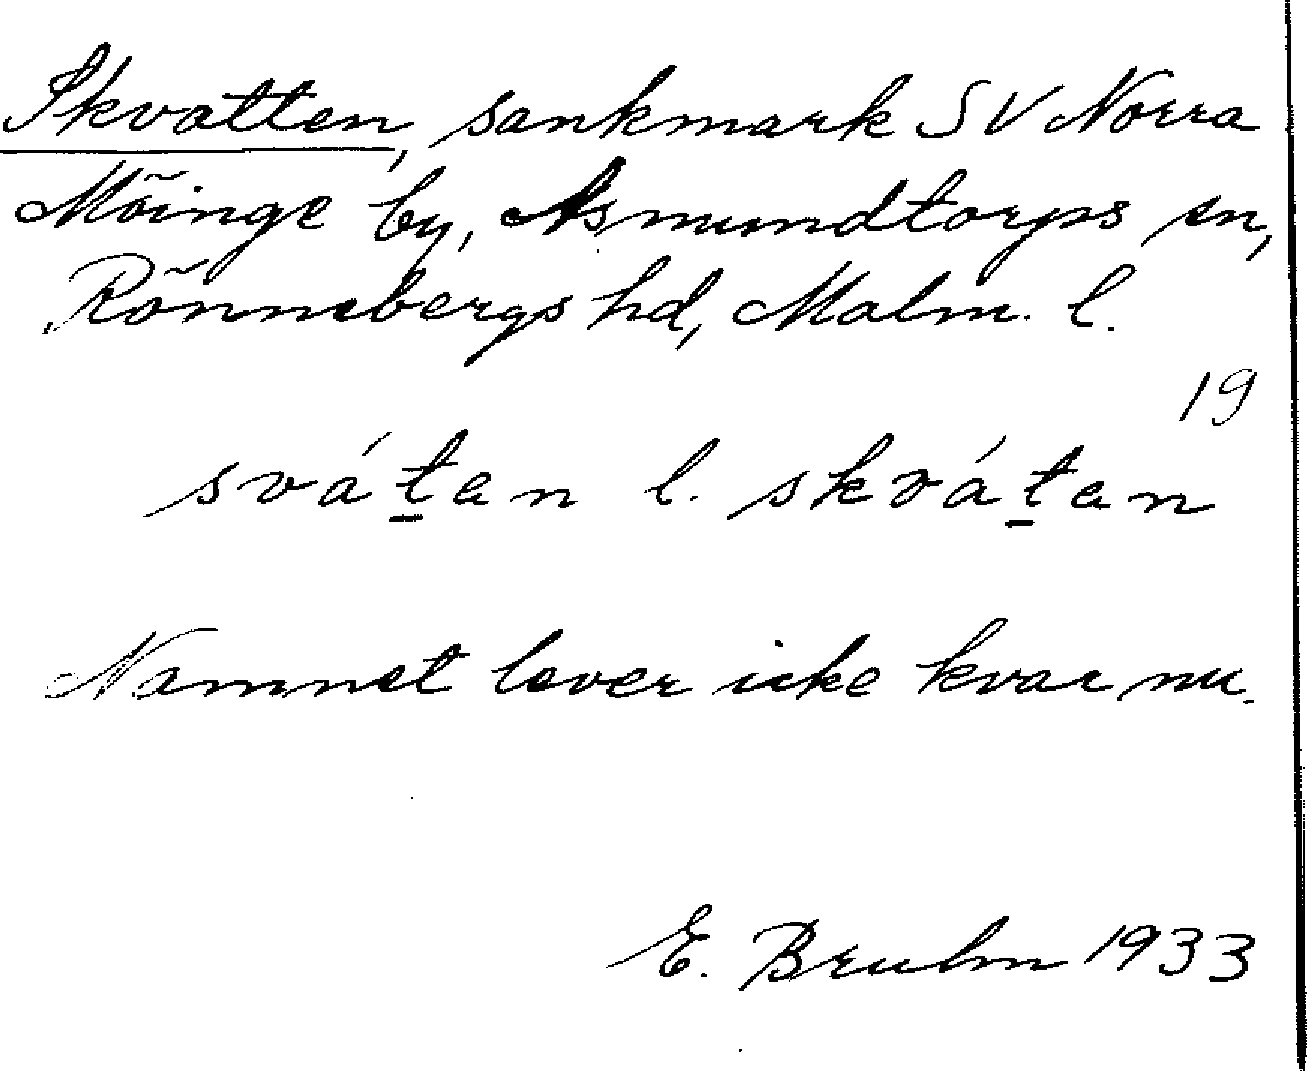 Skvatten, sankmark SV Norra
Möinge by, Asmundtorps sn,
Rönnebergs hd, Malm. l.
19
svát̲an l. skvát̲an
Namnet lever icke kvar nu.
E. Bruhn 1933